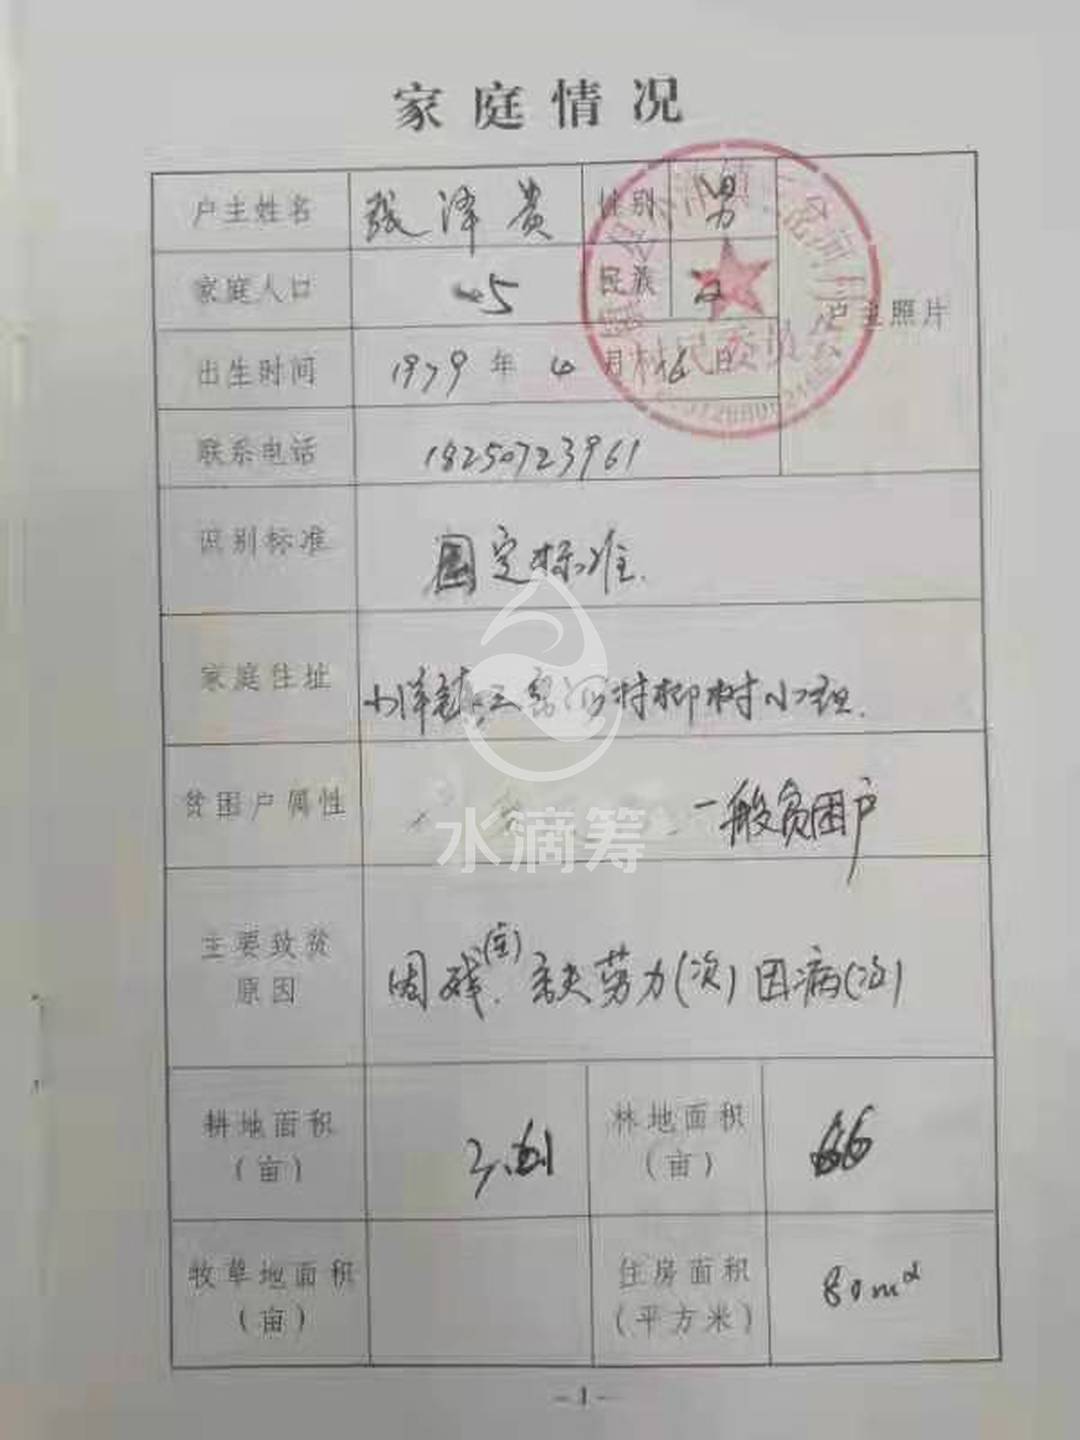 家庭情况
户主姓名 张泽贵 性别 男
家庭人口 5 民族 汉
户主照片
出生时间 1979年4月16日
联系电话 18250723961
识别标准 国定标准.
家庭住址 小洋镇三岔河村柳树小组.
贫困户属性 一般贫困户
水滴筹
主要致贫 因残(主).缺劳力(次)因病(次)
原因
耕地面积 3.61 林地面积 66
(亩) (亩)
牧草地面积 住房面积 80m²
(亩) (平方米)
村民委员会
-1-